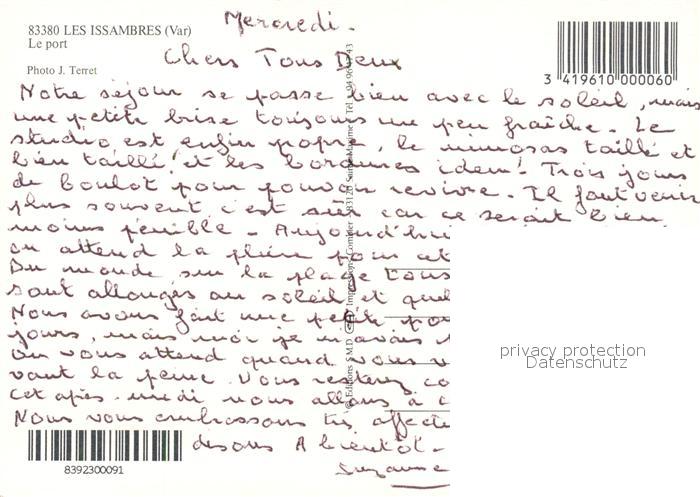 Mercredi.
83380 LES ISSAMBRES (Var)
Le port
Photo J. Terret
3 419610 000060
Chers Tous Deux
Notre séjour se passe bien avec le soleil, mais
une petite brise toujours un peu fraîche. Le
studio est enfin propre, le mimosas taillé et
bien taillé! et les baronnes idem! Trois jours
de boulot pour pouvoir revivre. Il faut venir
plus souvent c'est sûr car ce serait bien
moins pénible. Aujourd'hui
on attend la pluie pour cet
Du monde sur la plage tous
sont allongés au soleil et quel
Nous avons fait une petite
jours, mais moi je m'avais
On vous attend quand vous v
vaut la peine. Vous resterez co
Cet après-midi nous allons à c
Nous vous embrassons très affecte
disons A bientôt.
Suzanne
© Editions S.M.D.
privacy protection
Datenschutz
8392300091